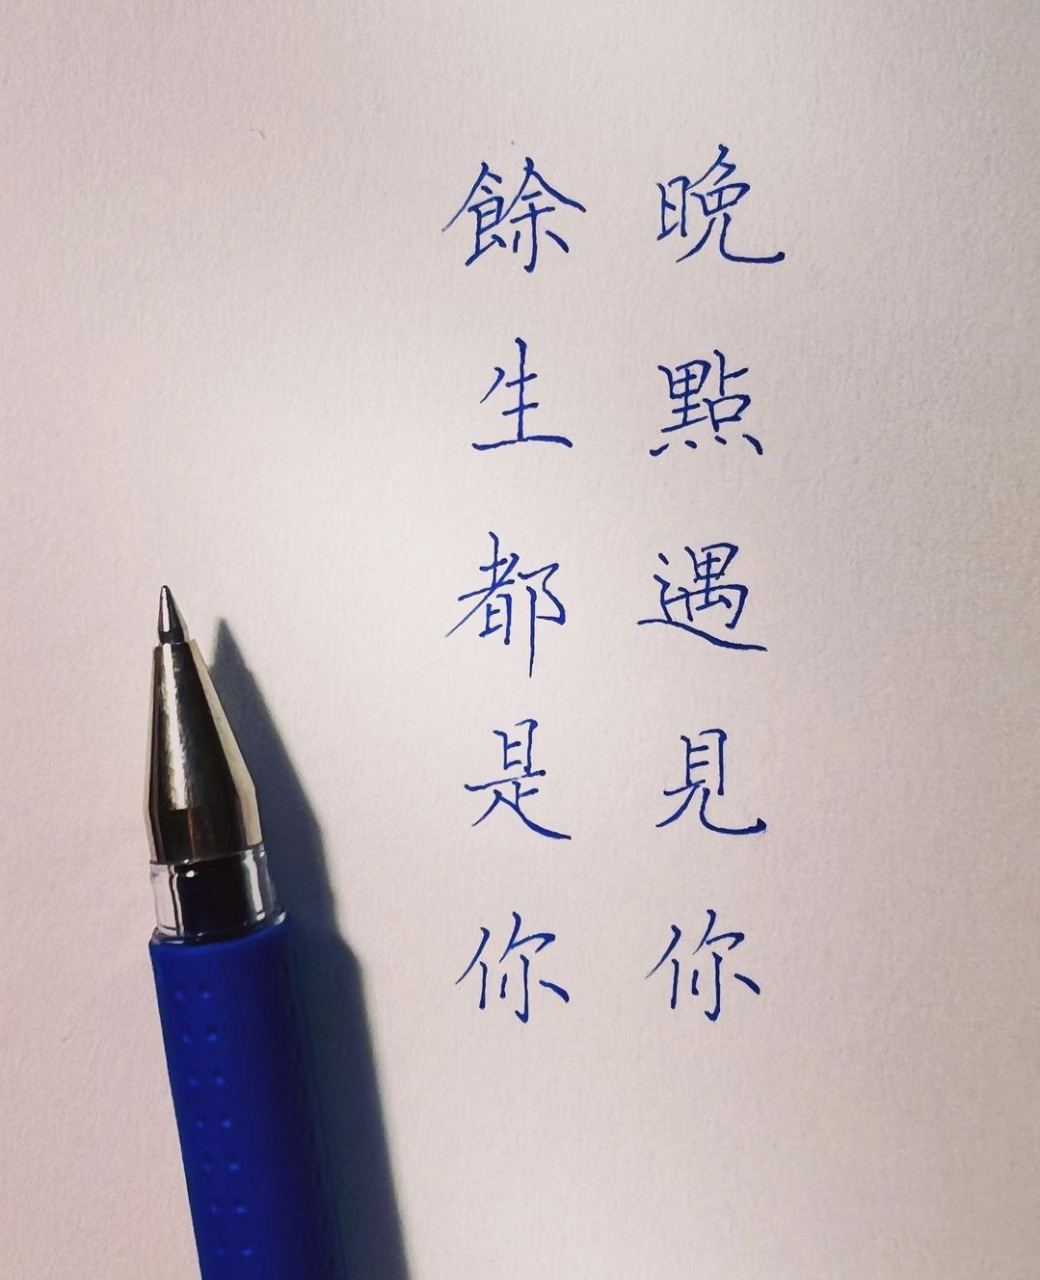 晚點遇見你
餘生都是你